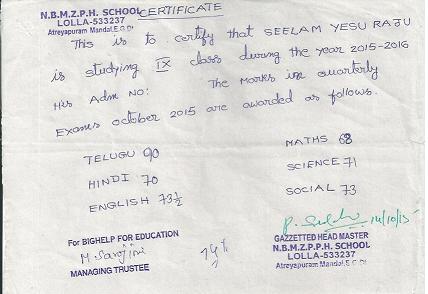 N.B.M.Z.P.H. SCHOOL CERTIFICATE
LOLLA-533237
Atreyapuram Mandal, E.G.Dt
This is to certify that SEELAM YESU RAJU
is studying IX class during the year 2015-2016
His Adm NO: The Marks in quarterly
Exams october 2015 are awarded as follows.
TELUGU 90
HINDI 70
ENGLISH 73½
MATHS 68
SCIENCE 71
SOCIAL 73
14/10/15
For BIGHELP FOR EDUCATION
M. Sarojini
MANAGING TRUSTEE
GAZZETTED HEAD MASTER
N.B.M.Z.P.P.H. SCHOOL
LOLLA-533237
Atreyapuram Mandal, E.G.Dt